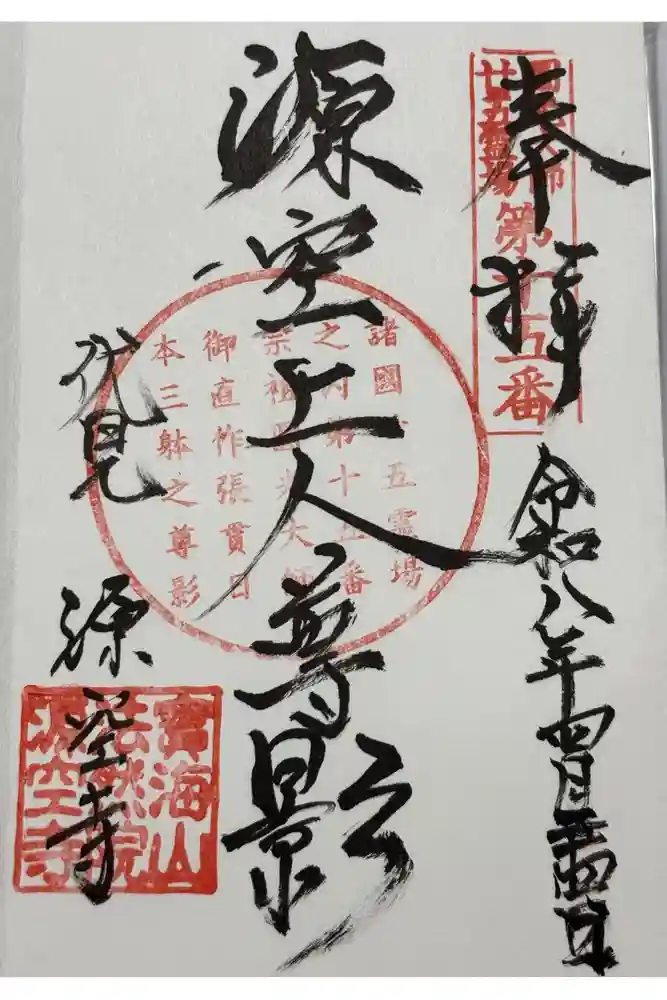 奉拝
令和八年四月二十四日
圓光大師
廿五霊場
第十五番
源空上人尊影
諸國廿五霊場
之内第十五番
宗祖圓光大師
御直作張貫日
本三躰之尊影
伏見
源空寺
寳海山
法然院
源空寺